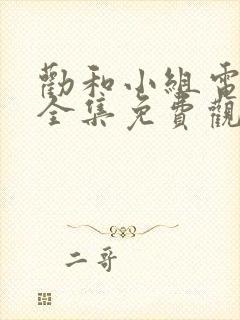 勸和小組電
全集免費觀
二哥